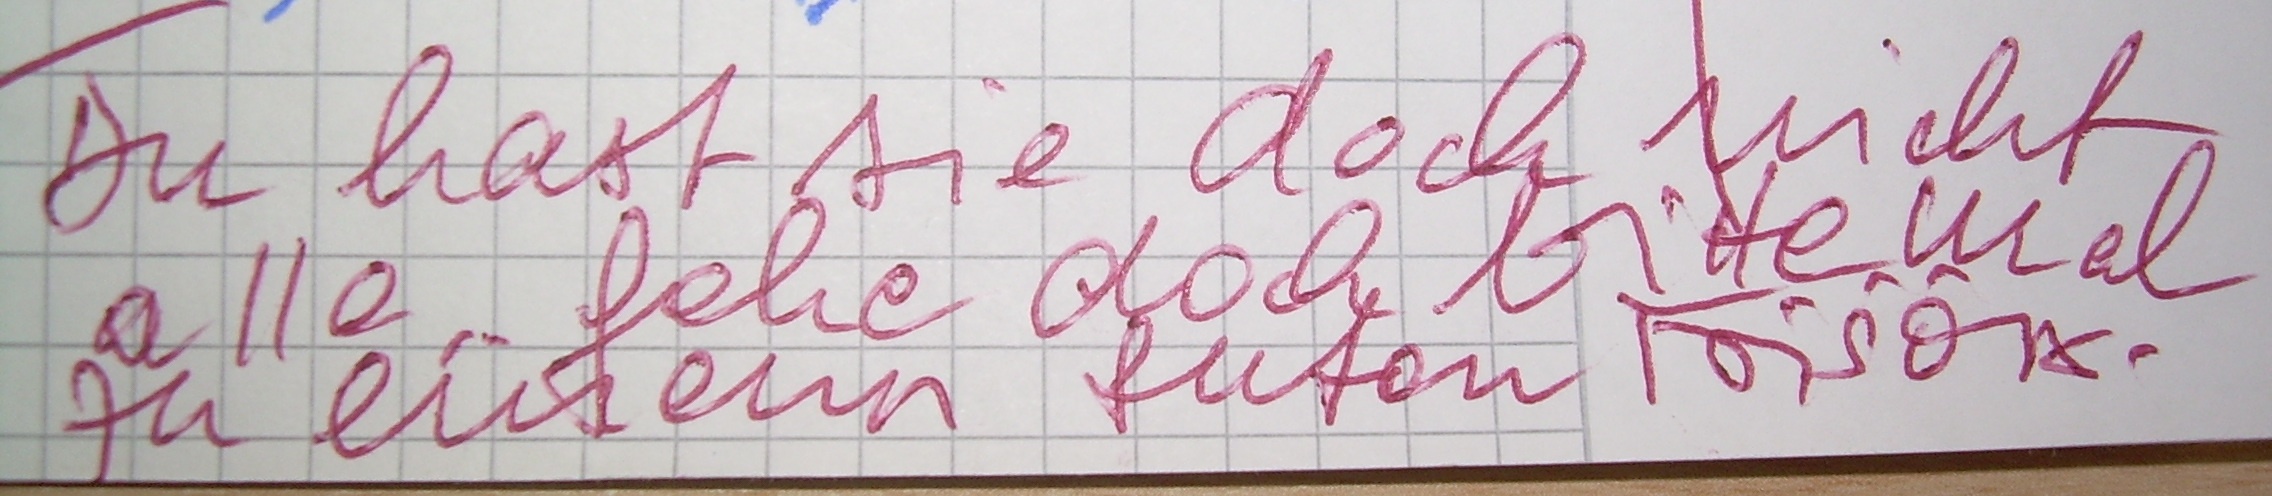 Du hast sie doch nicht
alle gehe doch bitte mal
zu einem guten